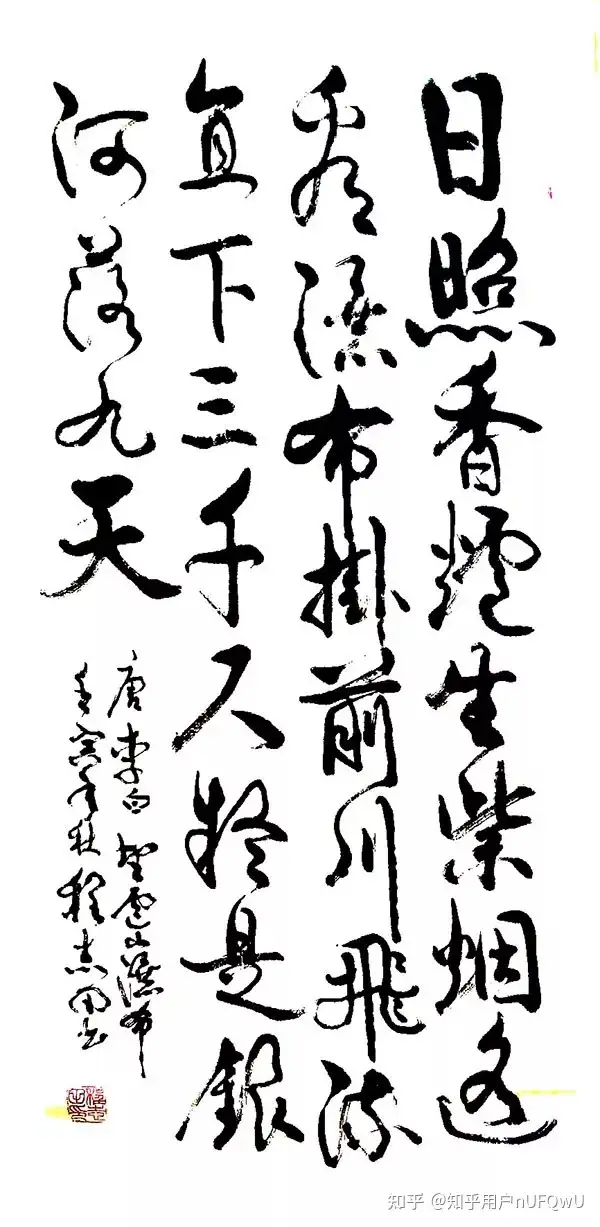 日照香爐生紫烟遥
看瀑布掛前川飛流
直下三千尺疑是銀
河落九天
唐李白望廬山瀑布
壬寅年秋程志书
知乎 @知乎用户nUFQwU